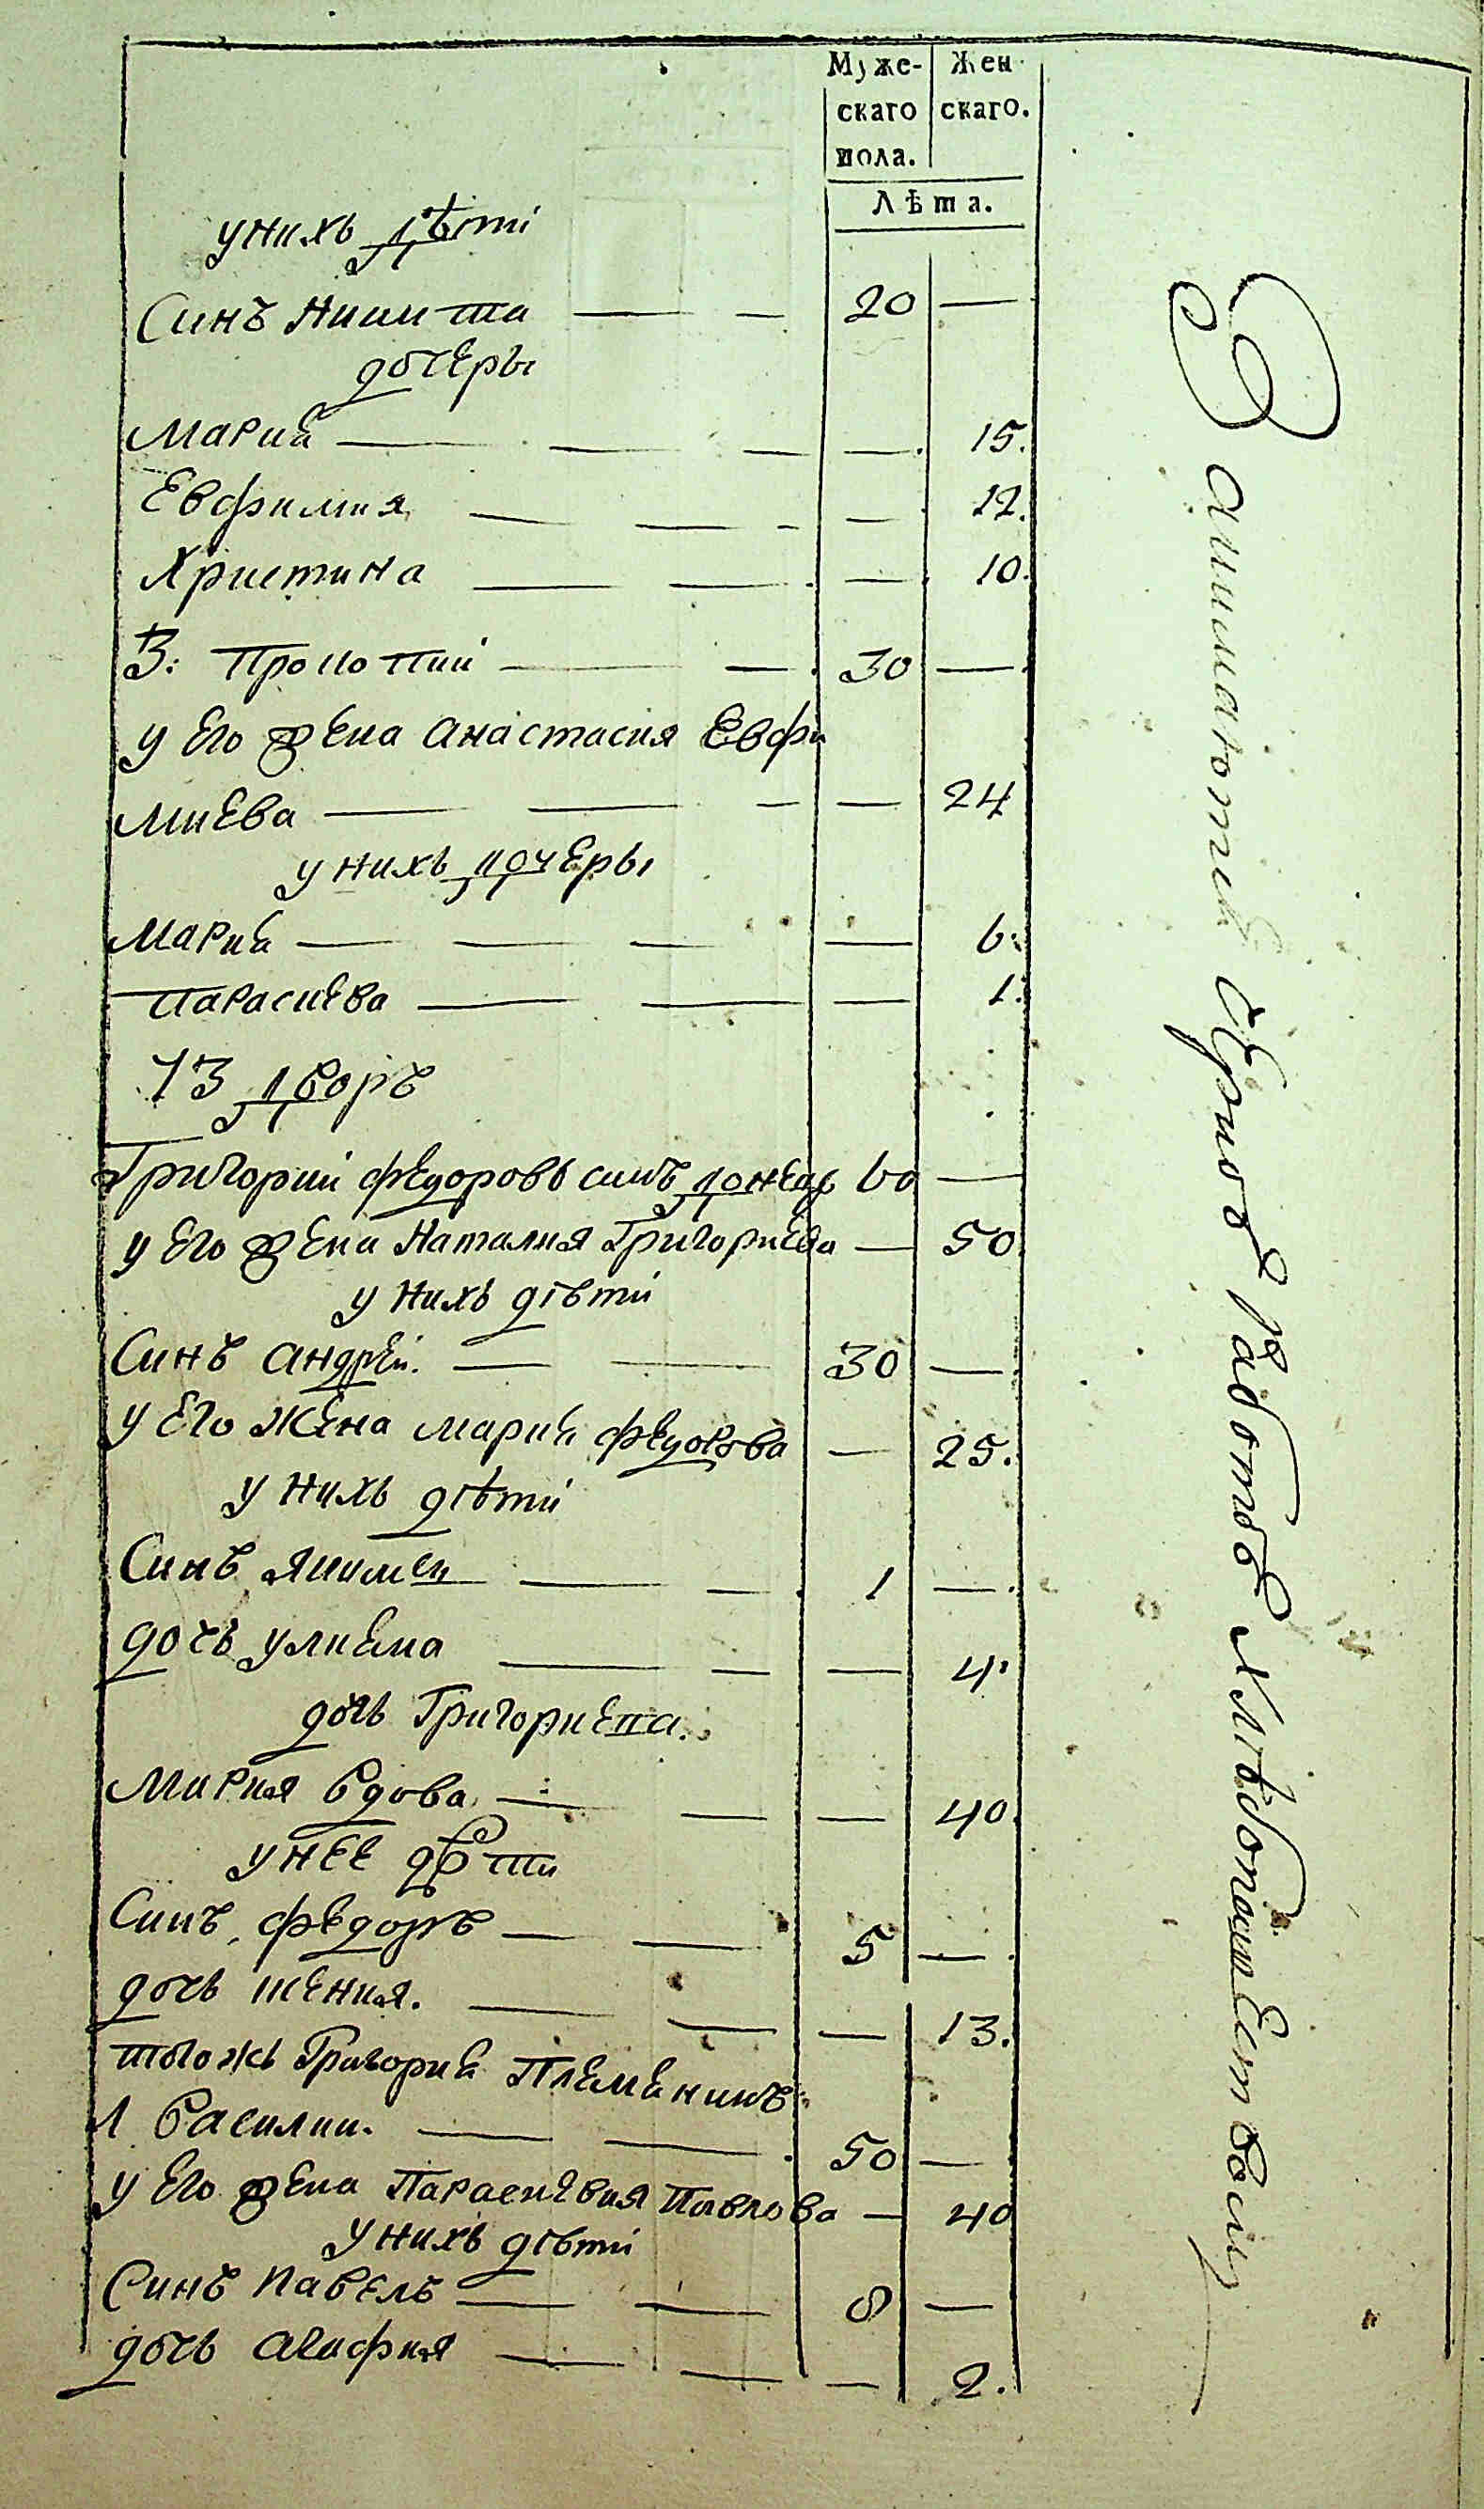 Муже-
скаго
пола.
Жен
скаго.
Лѣта.
у нихъ дѣти
Синъ Никита — — 20 —
дочеры
Марий — — — — 15.
Евфимия — — - — 12.
Христина — — — 10.
3: Прокопий — — 30 —
у Его жена Анастасия Евфи
миева — — — — 24
у нихъ дочеры
Марий — — — — 6.
Параскева — — — 1.
13 дворъ
Григорий Федоровъ синъ 60 —
у Его жена Наталия Григориева — 50
у нихъ дѣти
Синъ Андрей. — — 30 —
у Его жена Марий Федорова — 25.
у нихъ дѣти
Синъ Яким — — 1 —
дочь Улиена — — — 4.
дочь Григориена.
Мария вдова — — — 40.
у нее дѣти
Синъ Федоръ — — 5 —
дочь Ксения. — — — 13.
тогожъ Григорий Племенникъ
1 Василии. — — 50 —
у Его жена Параскевия Павлова — 40
у нихъ дѣти
Синъ Павелъ — — 8 —
дочь Агафия — — — 2.
Занимаютца работою хлѣбопашественою